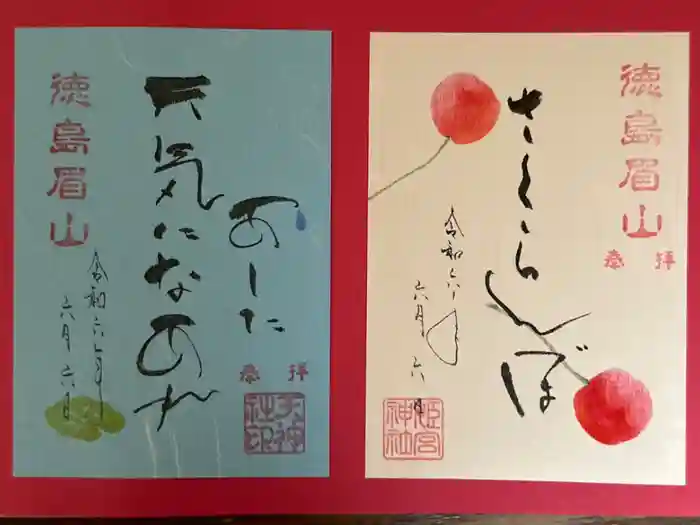 徳島眉山
奉拝
さくらんぼ
令和六年
六月六日
姫宮
神社
あした
天気になあれ
奉拝
天神
社印
徳島眉山
令和六年
六月六日